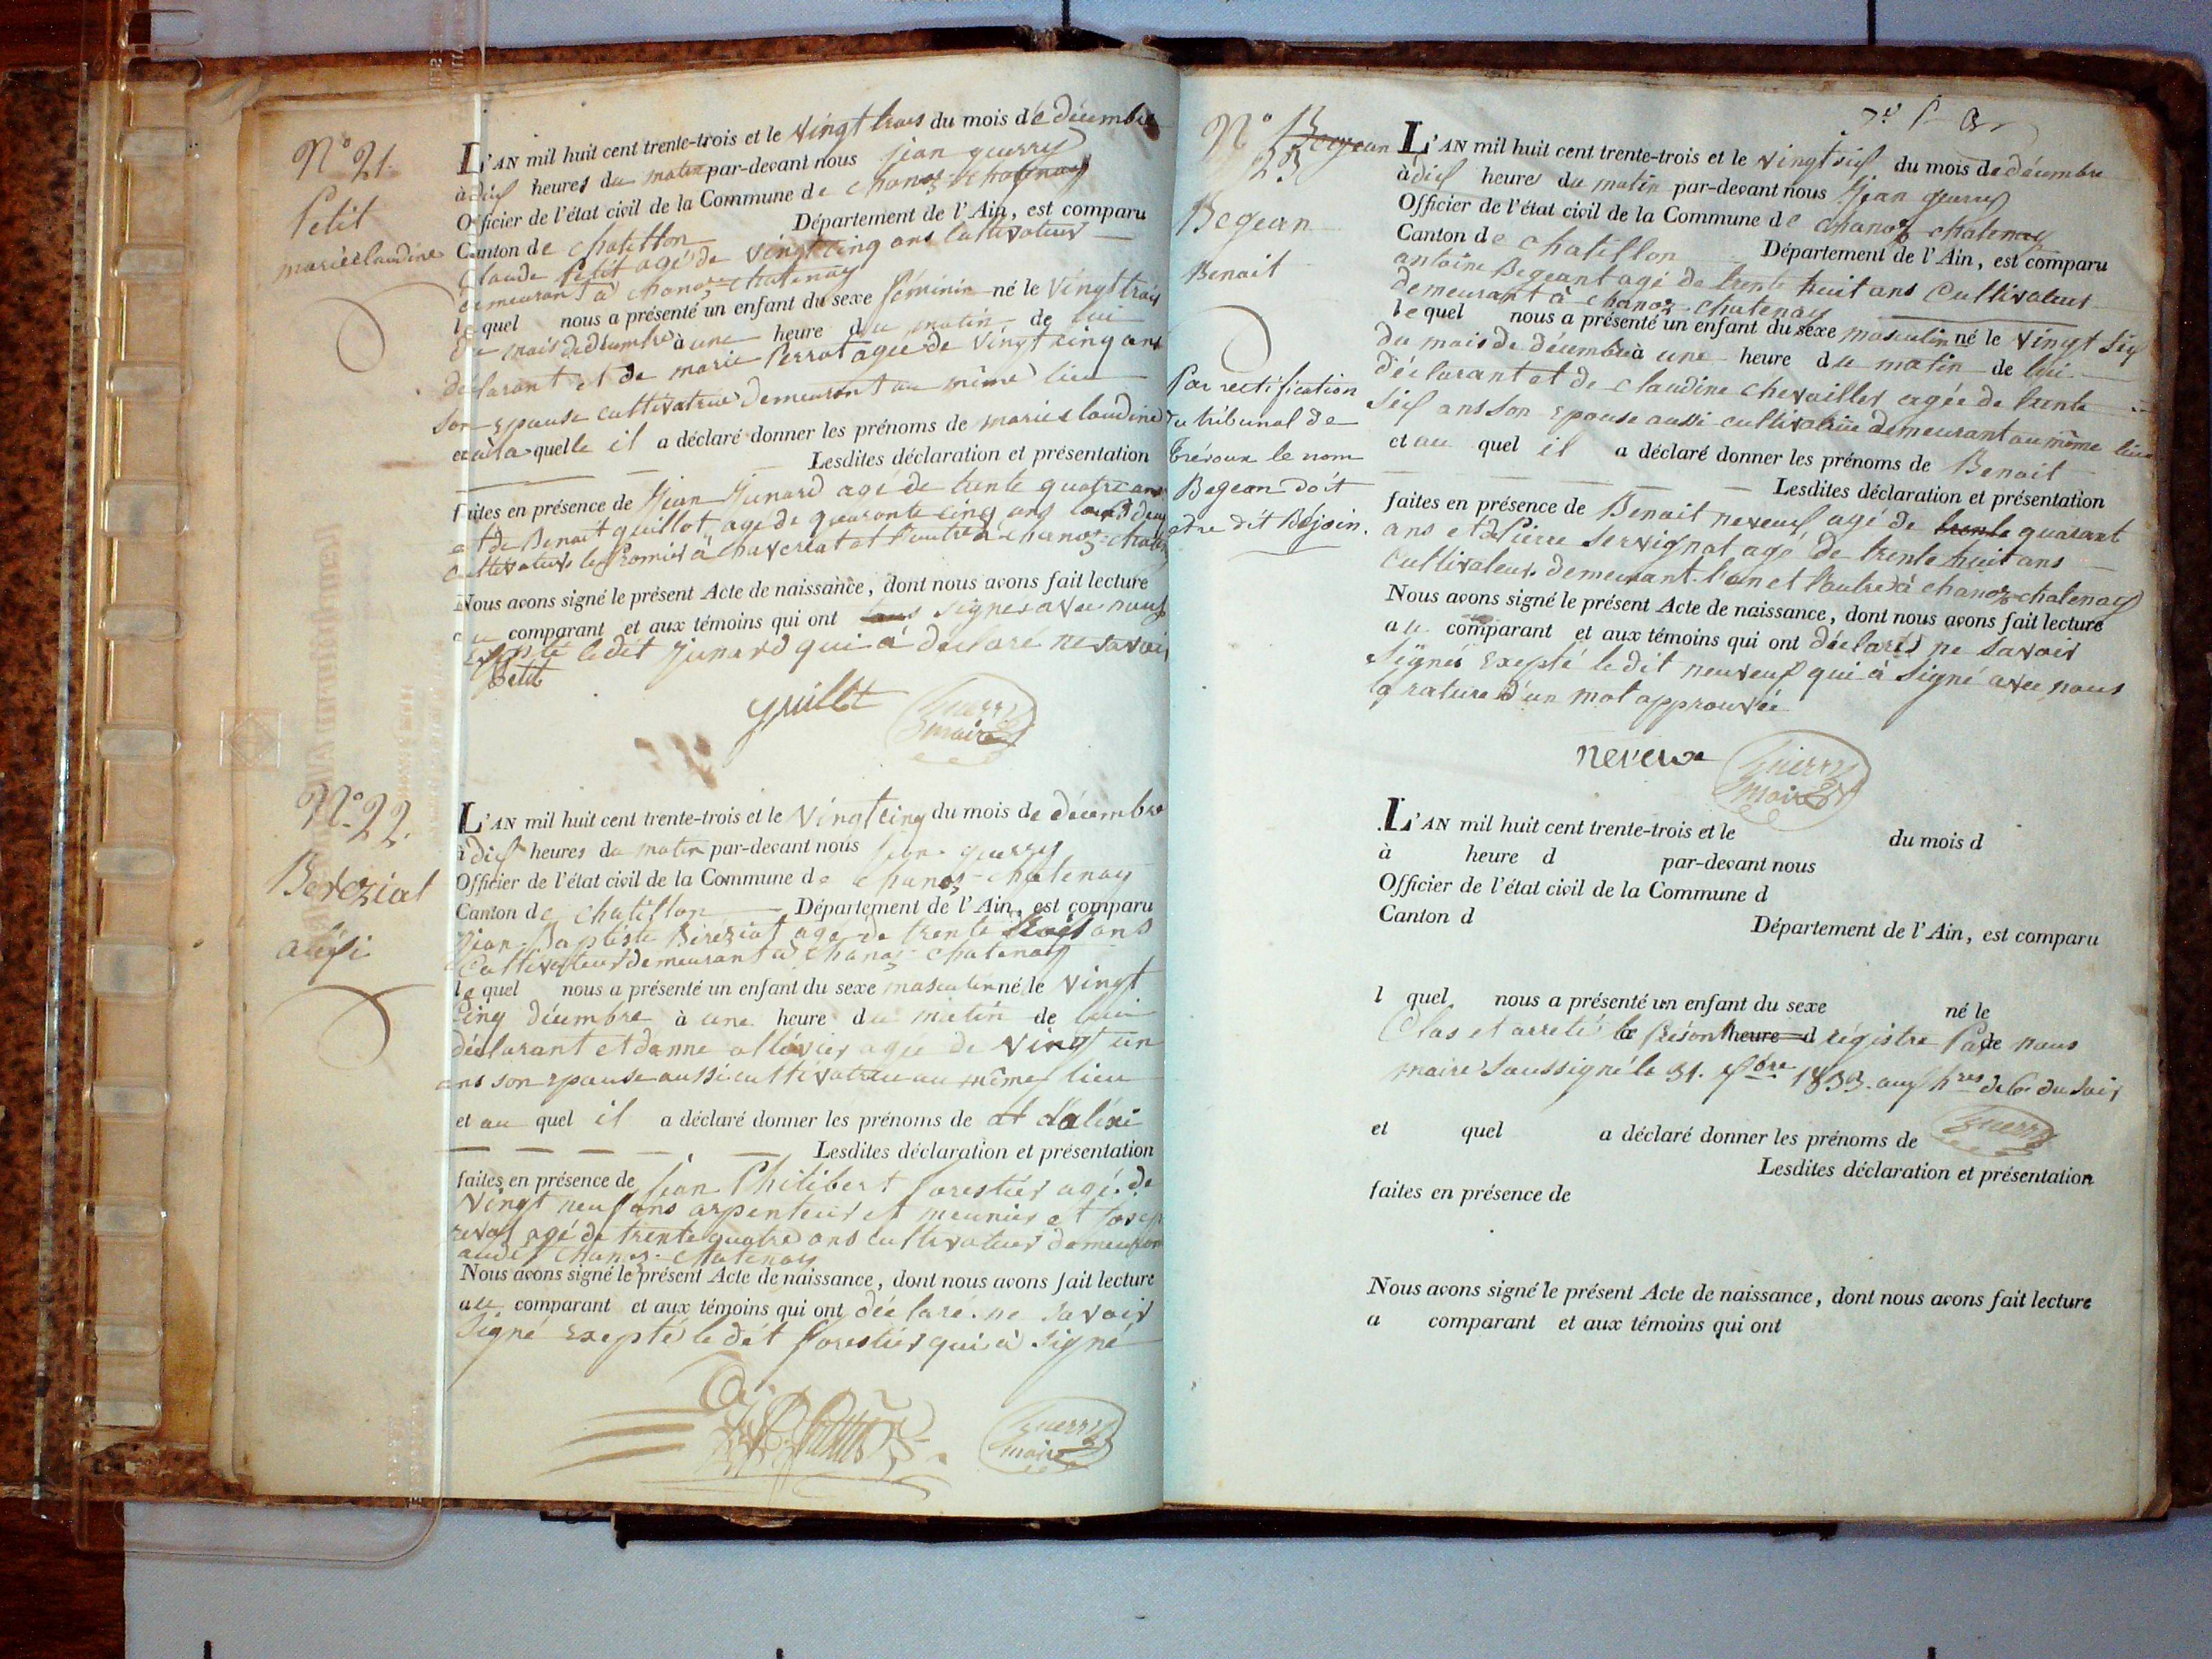 N° 21.
Petit
marie claudine
L'AN mil huit cent trente-trois et le vingt trois du mois de décembre
à dix heures du matin par-devant nous jean guerry
Officier de l'état civil de la Commune de chanoz chatenay
Canton de chatillon Département de l'Ain, est comparu
claude Petit agé de vingt cinq ans cultivateur
demeurant à chanoz chatenay
lequel nous a présenté un enfant du sexe féminin né le vingt trois
du mois de décembre à une heure du matin de lui
déclarant et de marie Perrat agee de vingt cinq ans
son epouse cultivatrice demeurant au même lieu
et à laquelle il a déclaré donner les prénoms de marie claudine
Lesdites déclaration et présentation
faites en présence de jean junard agé de trente quatre ans
et de Benoit guillot, agé de quarante cinq ans tous deux
cultivateurs le Premier à chaveriat et l'autre à chanoz-chaten
Nous avons signé le présent Acte de naissance, dont nous avons fait lecture
au comparant et aux témoins qui ont tous signer avec nous
exepté ledit junard qui à déclaré ne savoir
Petit
guillot
guerry
maire
N° 22.
Bereziat
alexi
L'AN mil huit cent trente-trois et le vingt cinq du mois de décembre
à dix heures du matin par-devant nous jean guerry
Officier de l'état civil de la Commune de chanoz-chatenay
Canton de chatillon Département de l'Ain, est comparu
jean-Baptiste Bereziat agé de trente ans
cultivateur demeurant à chanoz chatenay
lequel nous a présenté un enfant du sexe masculin né le vingt
cinq décembre à une heure du matin de lui
déclarant et danne ollavier agee de vingt un
ans son epouse aussi cultivatrice au même lieu
et au quel il a déclaré donner les prénoms de d'aléxi
Lesdites déclaration et présentation
faites en présence de jean Philibert forestier agé de
vingt neuf ans arpenteur et meunier et josep
revol agé de trente quatre ans cultivateur demeuran
audit chanoz-chatenay
Nous avons signé le présent Acte de naissance, dont nous avons fait lecture
au comparant et aux témoins qui ont déclaré ne savoir
signé exepté le dit forestier qui à signé
guerry
maire
N° Begean
23
Begean
Benoit
Par rectification
du tribunal de
Trévoux le nom
Begean doit
etre dit Bejoin.
L'AN mil huit cent trente-trois et le vingt six du mois de décembre
à dix heures du matin par-devant nous jean guerry
Officier de l'état civil de la Commune de chanoz chatenay
Canton de chatillon Département de l'Ain, est comparu
antoine Begeant agé de trente huit ans cultivateur
demeurant à chanoz-chatenay
lequel nous a présenté un enfant du sexe masculin né le vingt six
du mois de décembre à une heure du matin de lui
déclarant et de claudine chevailler agée de trente
six ans son epouse aussi cultivatrice demeurant au même lieu
et au quel il a déclaré donner les prénoms de Benoit
Lesdites déclaration et présentation
faites en présence de Benoit neveux agé de trente quarant
ans et de Pierre Servignat agé de trente huit ans
cultivateurs demeurant l'un et l'autre à chanoz-chatenay
Nous avons signé le présent Acte de naissance, dont nous avons fait lecture
au comparant et aux témoins qui ont déclarés ne savoir
signer exepté le dit neuveux qui à signé avec nous
la rature d'un mot approuvée
neveux
guerry
maire
L'AN mil huit cent trente-trois et le du mois d
à heure d par-devant nous
Officier de l'état civil de la Commune d
Canton d Département de l'Ain, est comparu
l quel nous a présenté un enfant du sexe né le
Clos et arreté le présent heure d régistre Par de nous
maire soussigné le 31. xbre 1833. aux hres de 6 du soir
et quel a déclaré donner les prénoms de
guerry
Lesdites déclaration et présentation
faites en présence de
Nous avons signé le présent Acte de naissance, dont nous avons fait lecture
a comparant et aux témoins qui ont